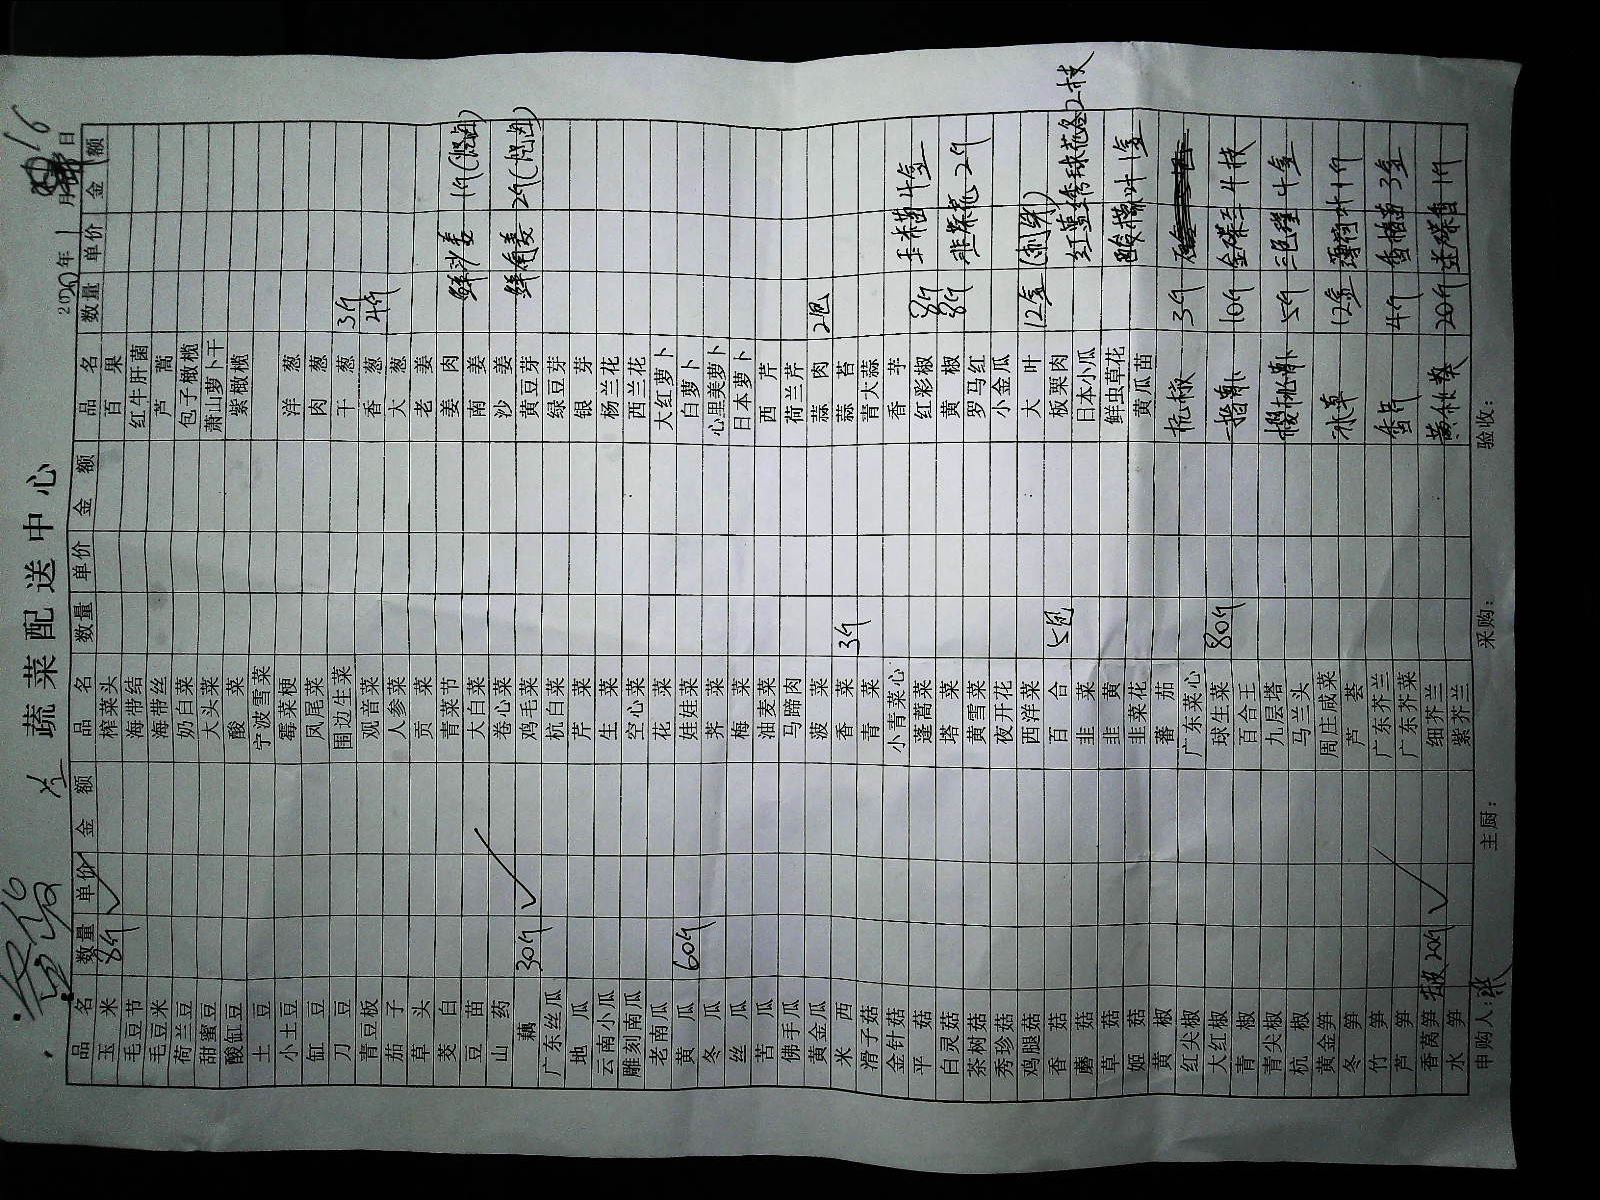 蔬菜配送中心
2020年1月16日
品名 数量 单价 金额 品名 数量 单价 金额 品名 数量 单价 金额
玉米 8斤 榨菜头 百果
毛豆节 海带结 红牛肝菌
毛豆米 海带丝 芦蒿
荷兰豆 奶白菜 包子橄榄
甜蜜豆 大头菜 萧山萝卜干
酸缸豆 酸菜 紫橄榄
土豆 宁波雪菜
小土豆 霉菜梗 洋葱
缸豆 凤尾菜 肉葱
刀豆 围边生菜 干葱 3斤
青豆板 观音菜 香葱 4斤
茄子 人参菜 大葱
草头 贡菜 老姜
茭白 青菜节 姜肉 鲜沙姜 1斤
豆苗 大白菜 南姜
山药 卷心菜 沙姜 鲜南姜 2斤
藕 30斤 鸡毛菜 黄豆芽
广东丝瓜 杭白菜 绿豆芽
地瓜 芹菜 银芽
云南小瓜 生菜 杨兰花
雕刻南瓜 空心菜 西兰花
老南瓜 花菜 大红萝卜
黄瓜 60斤 娃娃菜 白萝卜
冬瓜 荠菜 心里美萝卜
丝瓜 梅菜 日本萝卜
苦瓜 油麦菜 西芹
佛手瓜 马蹄肉 荷兰芹
黄金瓜 菠菜 蒜肉 2包
米西 香菜 3斤 蒜苔
滑子菇 青菜 青大蒜
金针菇 小青菜心 香芋 玉米苗 4盒
平菇 蓬蒿菜 红彩椒 8斤
白灵菇 塔菜 黄椒 8斤 韭菜花 2斤
茶树菇 黄雪菜 罗马红
秀珍菇 夜开花 小金瓜
鸡腿菇 西洋菜 大叶 12盒
香菇 百合 5包 板栗肉
蘑菇 韭菜 日本小瓜 2枝
草菇 韭黄 鲜虫草花 酸模叶 1盒
姬菇 韭菜花 黄瓜苗
黄椒 蕃茄 杭椒 3斤
红尖椒 广东菜心
大红椒 球生菜 80斤 10斤 4枝
青椒 百合王
青尖椒 九层塔 樱桃萝卜 5斤 三色堇 4盒
杭椒 马兰头
黄金笋 周庄咸菜 冰草 12盒 薄荷叶 1斤
冬笋 芦荟
竹笋 广东芥兰 4斤 香椿苗 3盒
芦笋 广东芥菜
香莴笋 20斤 细芥兰 黄秋葵 20斤 1斤
水笋 紫芥兰
申购人: 主厨: 采购: 验收: